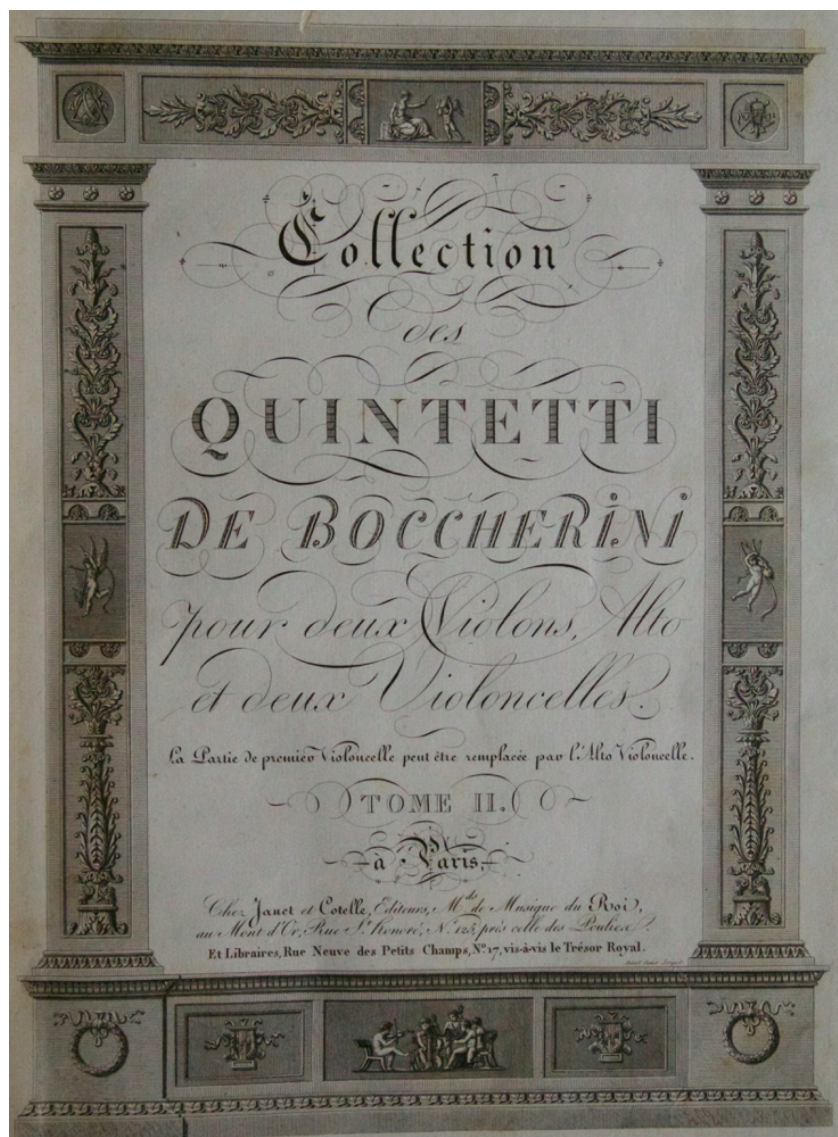 Collection
des
QUINTETTI
DE BOCCHERINI
pour deux Violons, Alto
et deux Violoncelles.
La Partie de premier Violoncelle peut être remplacée par l'Alto Violoncelle.
TOME II.
à Paris,
Chez Janet et Cotelle, Editeurs, Mds de Musique du Roi,
au Mont d'Or, Rue St. Honoré, No. 125, près celle des Poulies.
Et Libraires, Rue Neuve des Petits Champs, No. 17, vis-à-vis le Trésor Royal.